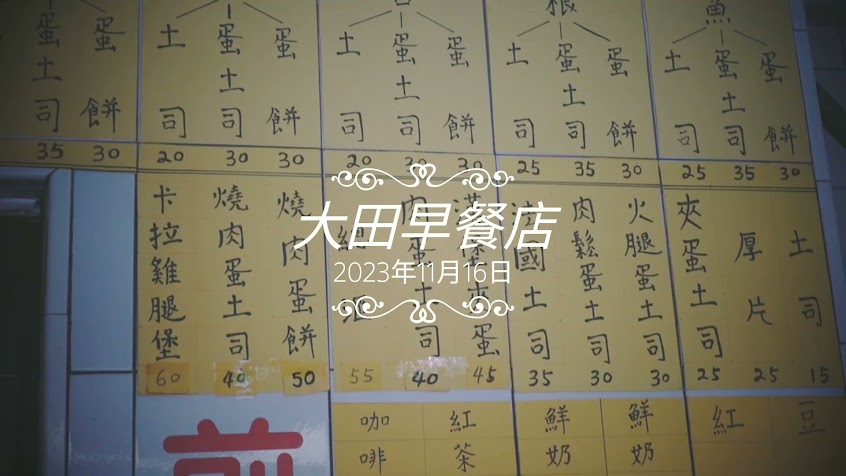 大田早餐店
2023年11月16日
根
魚
蛋土司
蛋餅
土司
蛋土司
蛋餅
土司
蛋土司
蛋餅
土司
蛋土司
蛋餅
土司
蛋土司
蛋餅
35 30
20 30 30
20 30 30
25 35 30
25 35 30
卡拉雞腿堡
燒肉蛋土司
燒肉蛋餅
肉蛋土司
法國土司
肉鬆蛋土司
火腿蛋土司
夾蛋土司
厚片
土司
60 40 50
55 40 45
35 30 30
25 25 15
煎
咖啡
紅茶
鮮奶
鮮奶
紅
豆